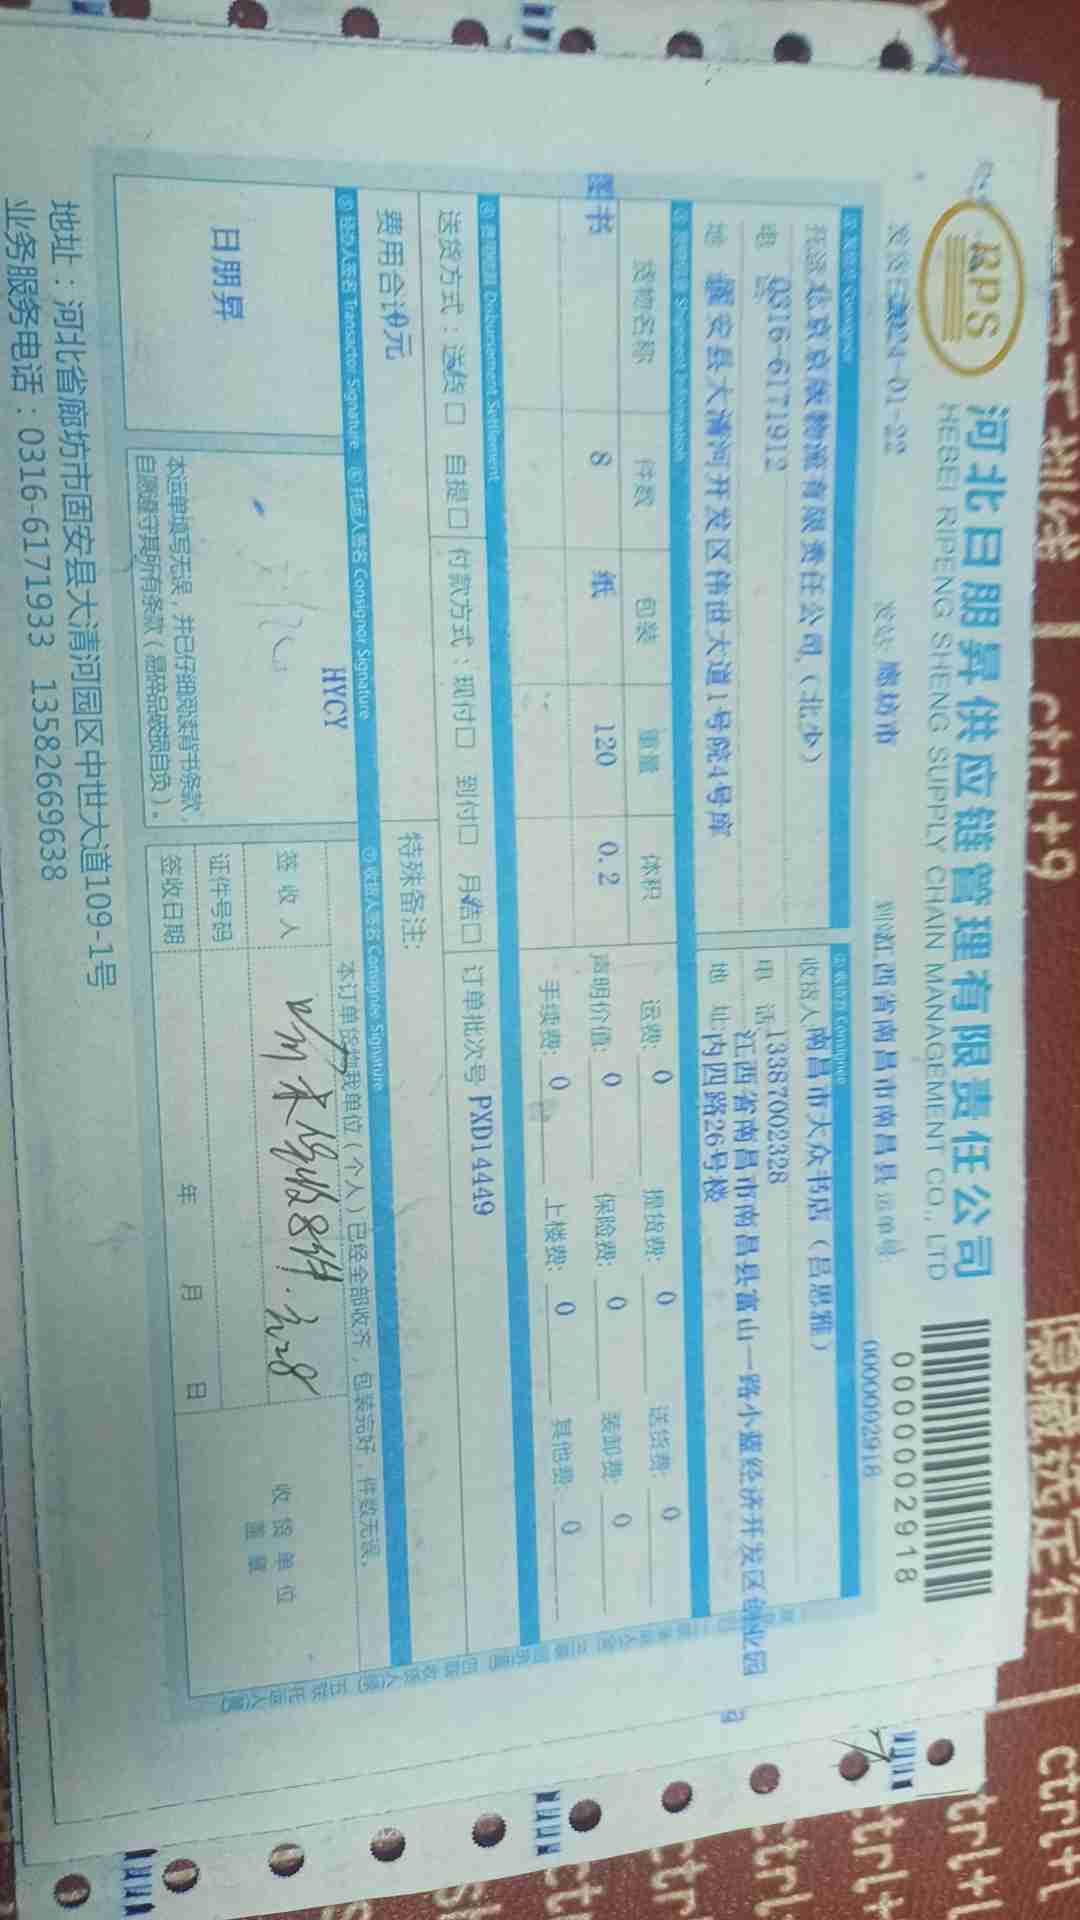 RPS
河北日朋昇供应链管理有限责任公司
HEBEI RIPENG SHENG SUPPLY CHAIN MANAGEMENT CO., LTD
0000002918
-01-22
廊坊市
江西省南昌市南昌县 运单号:
0000002918
① 发货方 Consignor
② 收货方 Consignee
北京京版物流有限责任公司（北少）
收货人 南昌市大众书店（吕思雅）
电 话 0316-6171912
电 话 13387002328
地 固安县大清河开发区伟世大道1号院4号库
地 址 江西省南昌市南昌县富山一路小蓝经济开发区创业园
内四路26号楼
③ 货物信息 Shipment Information
货物名称 件数 包装 重量 体积
图书 8 纸 120 0.2
运费: 0 提货费: 0 送货费: 0
声明价值: 0 保险费: 0 装卸费: 0
手续费: 0 上楼费: 0 其他费: 0
④ 费用结算 Disbursement Settlement
送货方式：送货口 自提口 付款方式：现付口 到付口 月结口 订单批次号 PXD14449
费用合计0元
特殊备注:
⑤ 经办人签名 Transactor Signature ⑥ 托运人签名 Consignor Signature ⑦ 收货人签名 Consignee Signature
日朋昇
HYCY
本运单填写无误，并已仔细阅读背书条款，
本订单货物我单位（个人）已经全部收齐，包装完好，件数无误。
签收人
证件号码
签收日期 年 月 日
收货单位
盖章
地址：河北省廊坊市固安县大清河园区中世大道109-1号
业务服务电话：0316-6171933 13582669638
ctrl+9